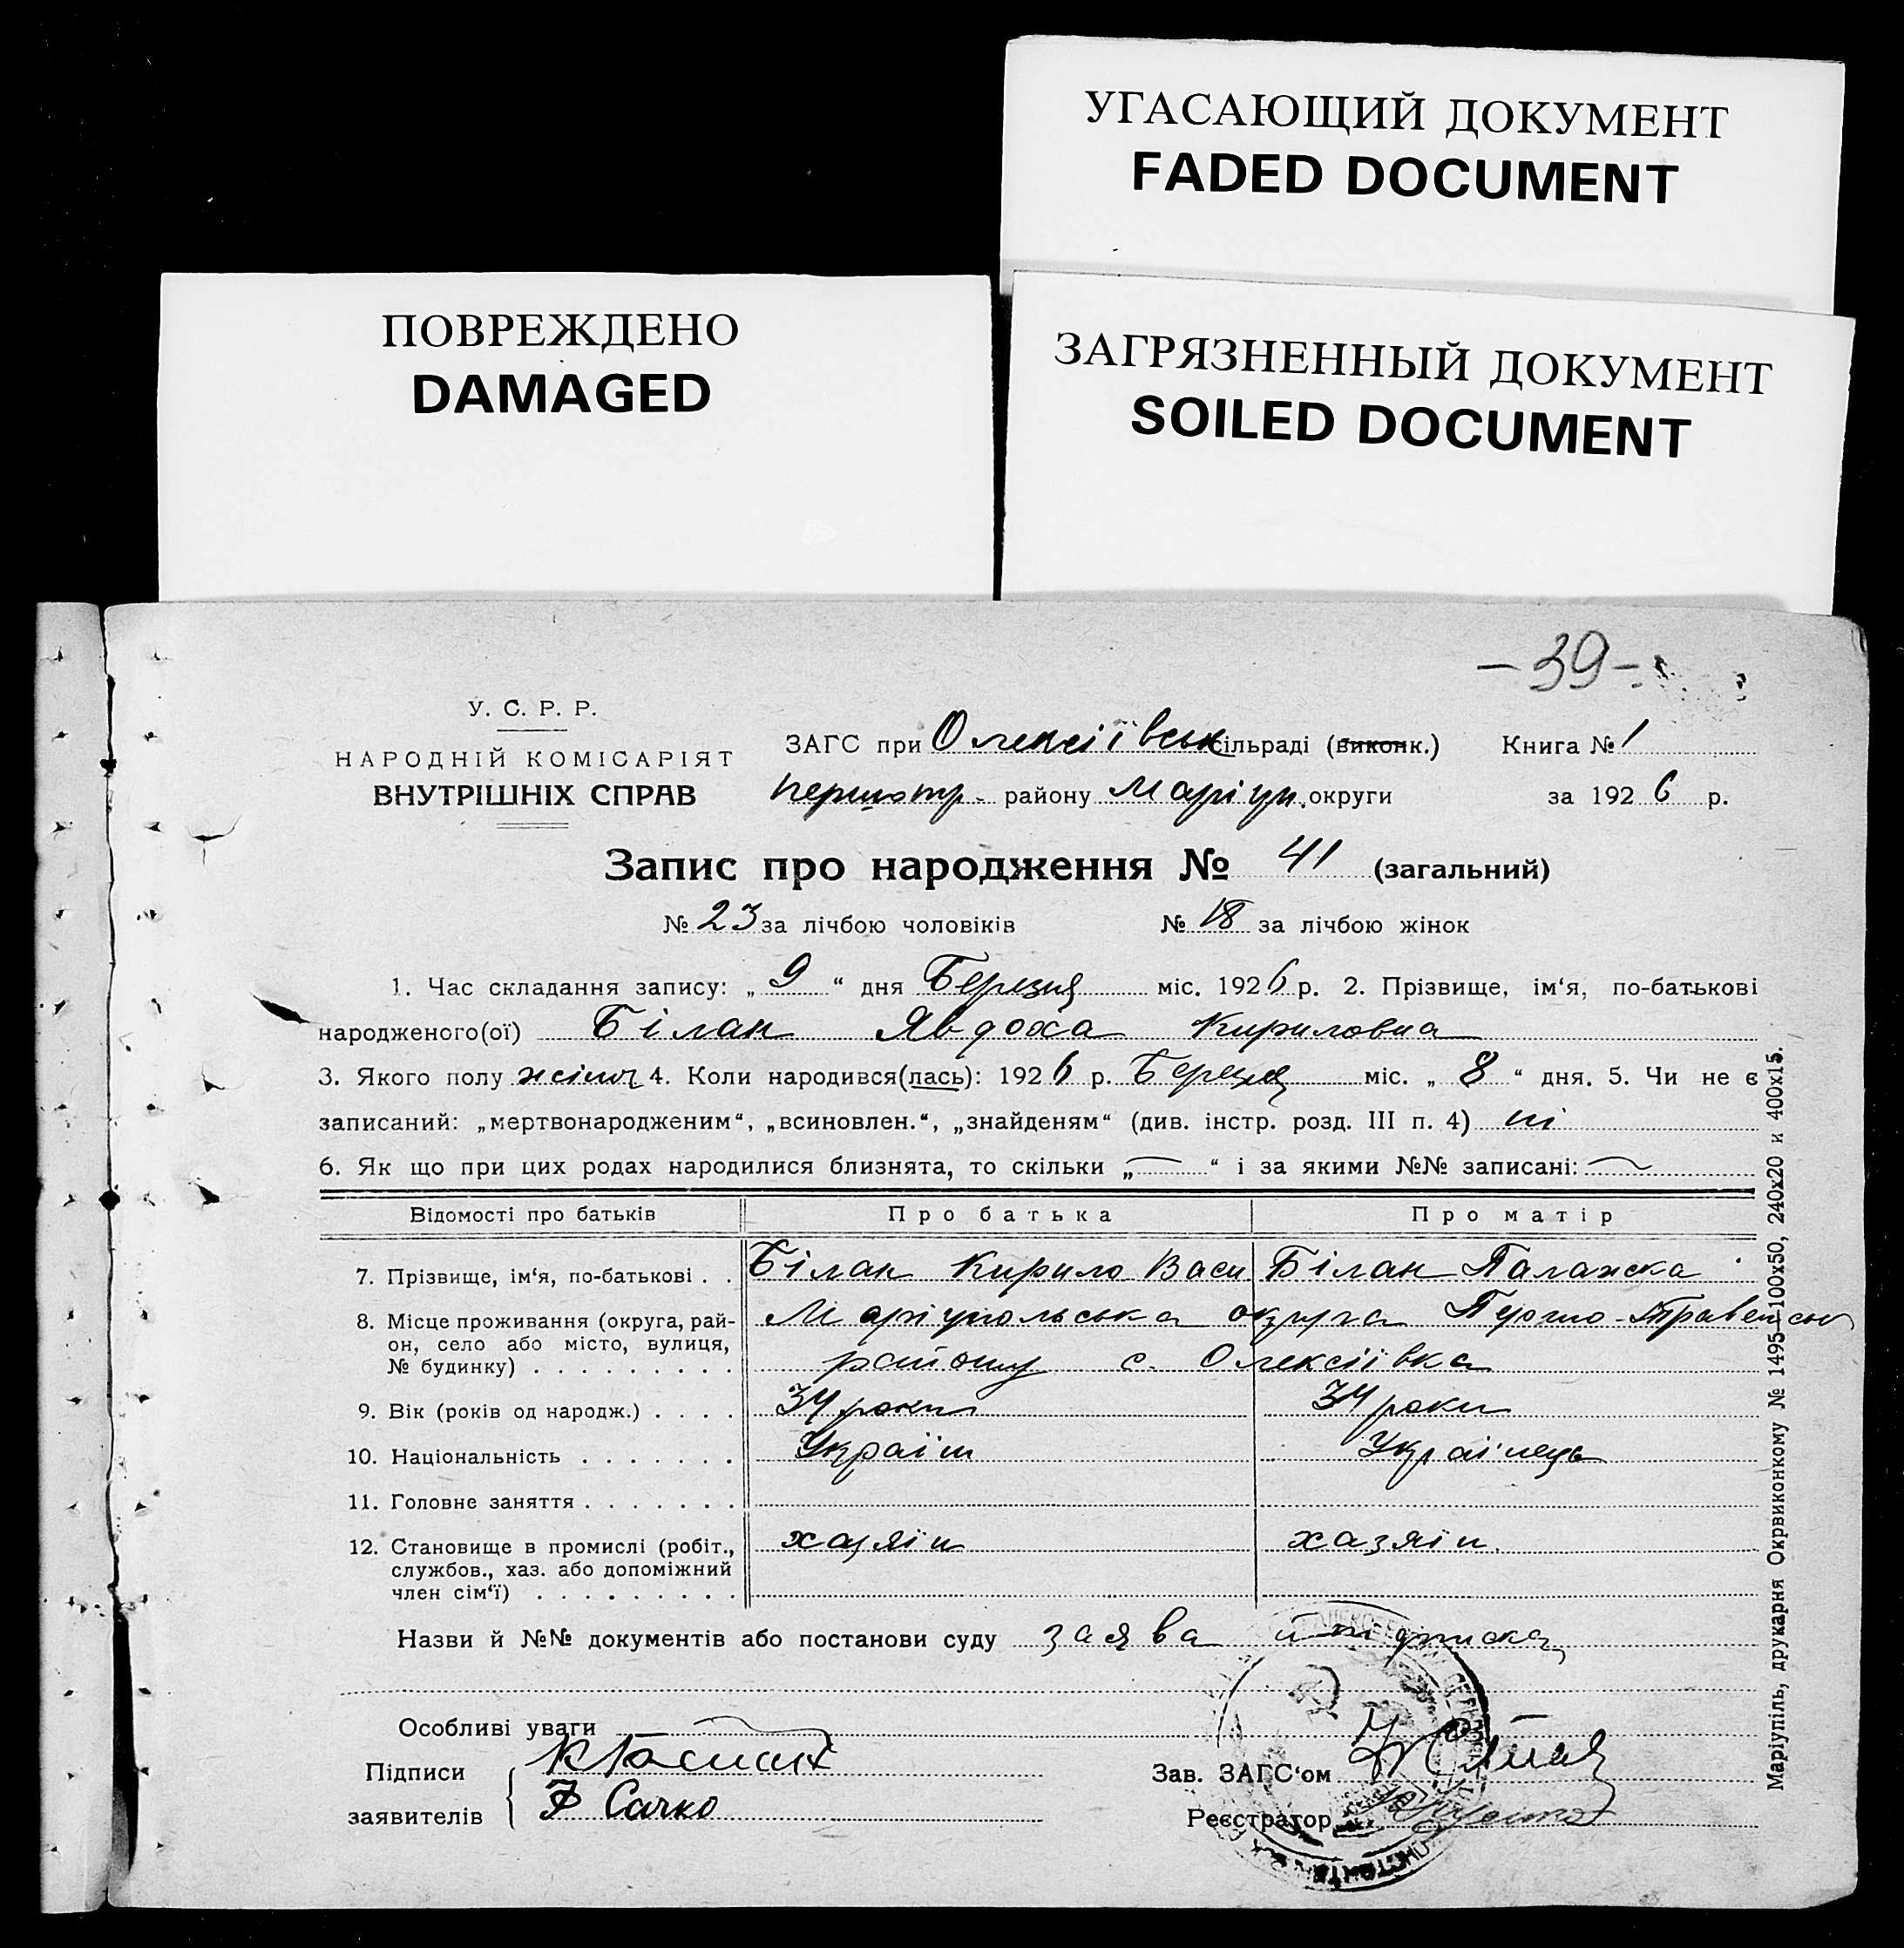 УГАСАЮЩИЙ ДОКУМЕНТ
FADED DOCUMENT
ПОВРЕЖДЕНО
DAMAGED
ЗАГРЯЗНЕННЫЙ ДОКУМЕНТ
SOILED DOCUMENT
-39-
У. С. Р. Р.
НАРОДНІЙ КОМІСАРІЯТ
ВНУТРІШНІХ СПРАВ
ЗАГС при Олексіївськ сільраді (виконк.) Книга № 1
Першотр. району Маріуп. округи за 1926 р.
Запис про народження № 41 (загальний)
№ 23 за лічбою чоловіків № 18 за лічбою жінок
1. Час складання запису: „ 9 “ дня Березня міс. 1926 р. 2. Прізвище, ім‘я, по-батькові
народженого(ої) Білан Явдоха Кириловна
3. Якого полу жіноч 4. Коли народився(лась): 1926 р. Березня міс. „ 8 “ дня. 5. Чи не є
записаний: „мертвонародженим“, „всиновлен.“, „знайденям“ (див. інстр. розд. III п. 4) ні
6. Як що при цих родах народилися близнята, то скільки „ — “ і за якими №№ записані: —
Відомості про батьків Про батька Про матір
7. Прізвище, ім‘я, по-батькові . . Білан Кирило Васи Білан Палажка
8. Місце проживання (округа, рай-
он, село або місто, вулиця,
№ будинку) . . . . . . . . .
Маріупольська округа Першо-Травенськ
району с. Олексіївка
9. Вік (років од народж.) . . . . 34 роки 34 роки
10. Національність . . . . . . . Україн Українець
11. Головне заняття . . . . . . .
12. Становище в промислі (робіт.,
службов., хаз. або допоміжний
член сім‘ї) . . . . . . . . .
хазяїн хазяїн.
Назви й №№ документів або постанови суду заява й підписка
Особливі уваги —
Підписи
заявителів
Ф Сачко
Зав. ЗАГС‘ом
Реєстратор
Маріупіль, друкарня Окрвиконкому № 1495—100х50, 240х20 и 400х15.